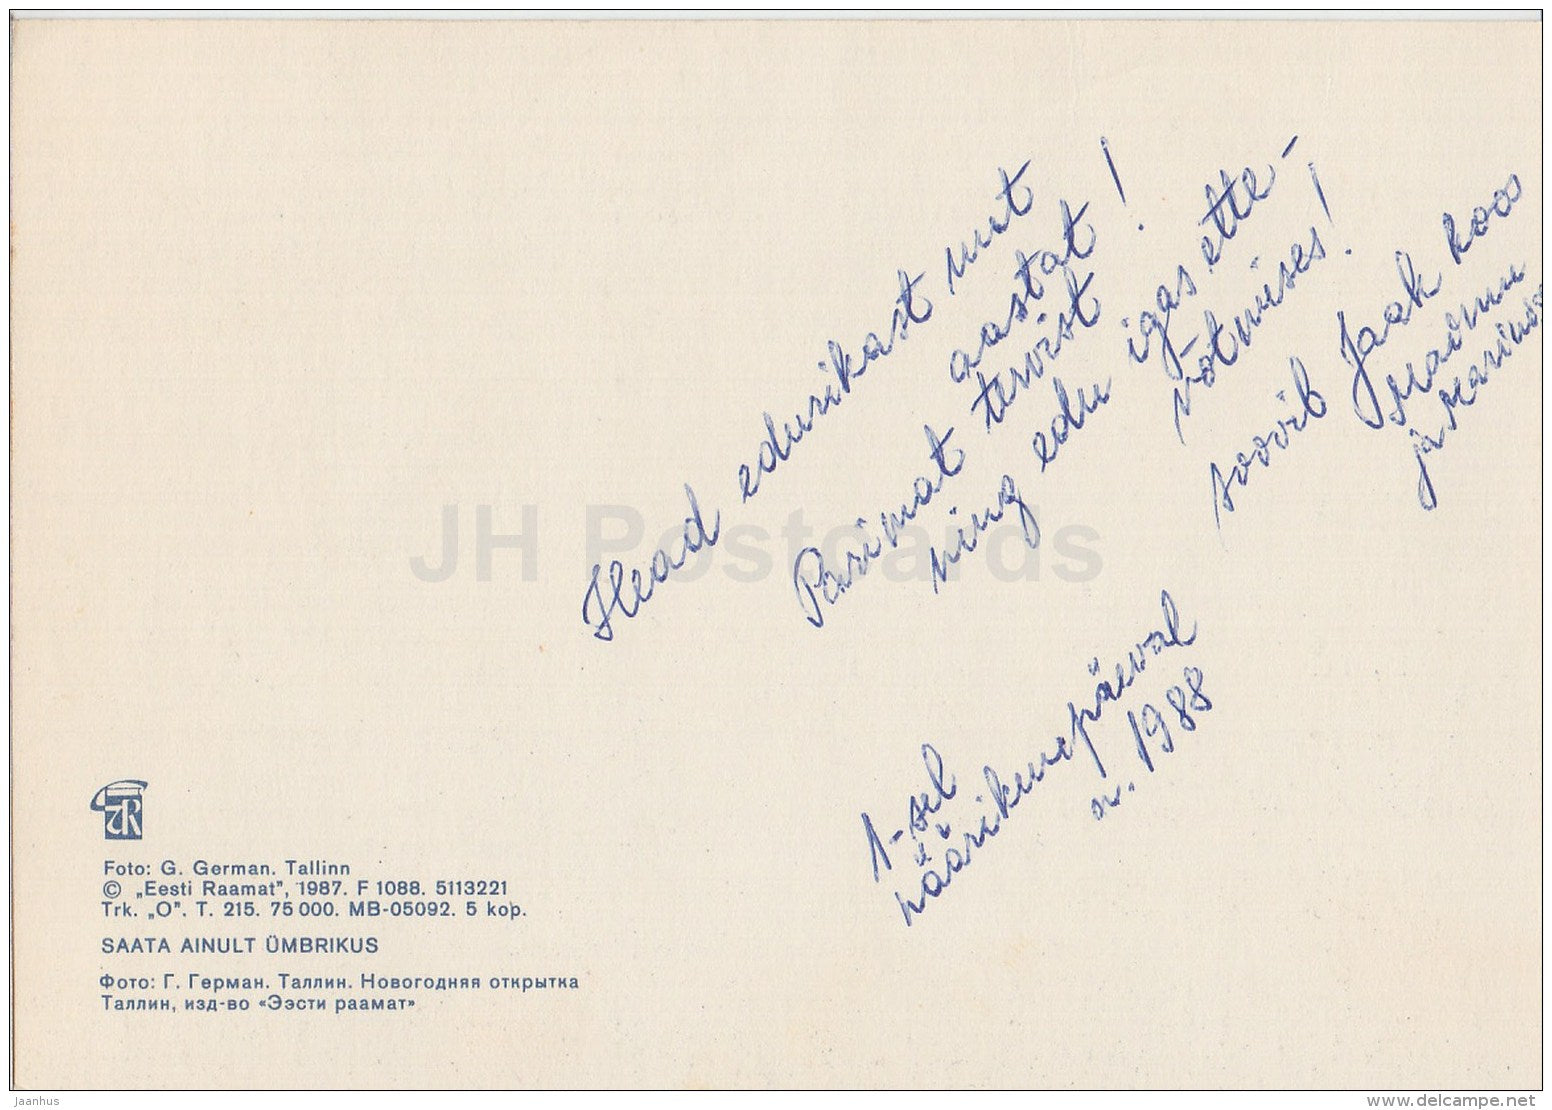 Head edurikast uut
aastat!
Parimat tervist
ning edu igas ette-
võtmises!
soovib Jaak koos
ja
1-sel
näärikuupäeval
a. 1988
JH Postcards
ER
Foto: G. German. Tallinn
© „Eesti Raamat”, 1987. F 1088. 5113221
Trk. „O”. T. 215. 75 000. MB-05092. 5 kop.
SAATA AINULT ÜMBRIKUS
Фото: Г. Герман. Таллин. Новогодняя открытка
Таллин, изд-во «Ээсти раамат»
Jaanhus
www.delcampe.net